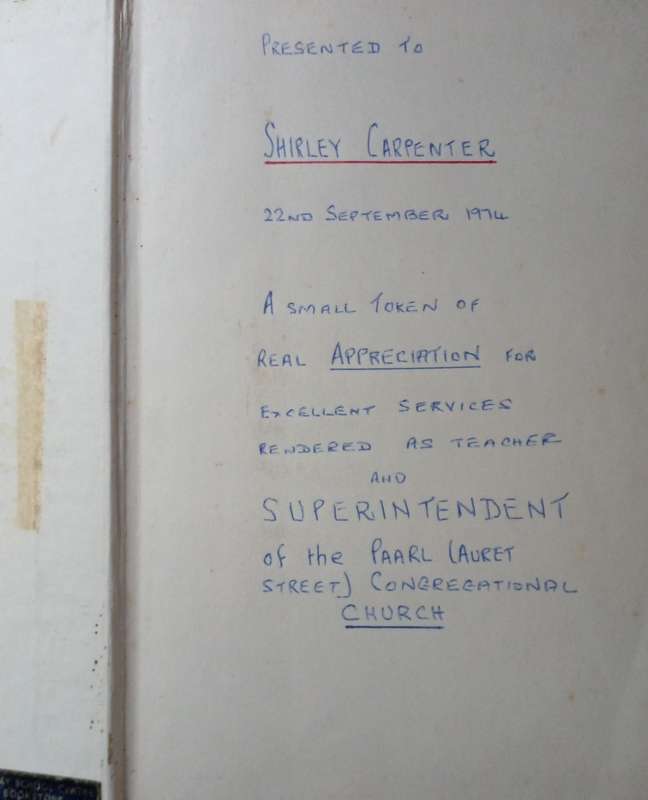 PRESENTED TO
SHIRLEY CARPENTER
22ND SEPTEMBER 1974
A SMALL TOKEN OF
REAL APPRECIATION FOR
EXCELLENT SERVICES
RENDERED AS TEACHER
AND
SUPERINTENDENT
of the PAARL (AURET
STREET) CONGREGATIONAL
CHURCH
BOOKSTORE